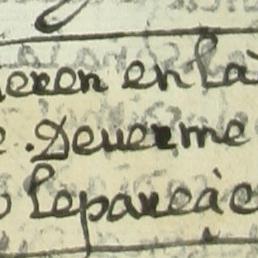 eren en la
. Deuerme
lepareàc